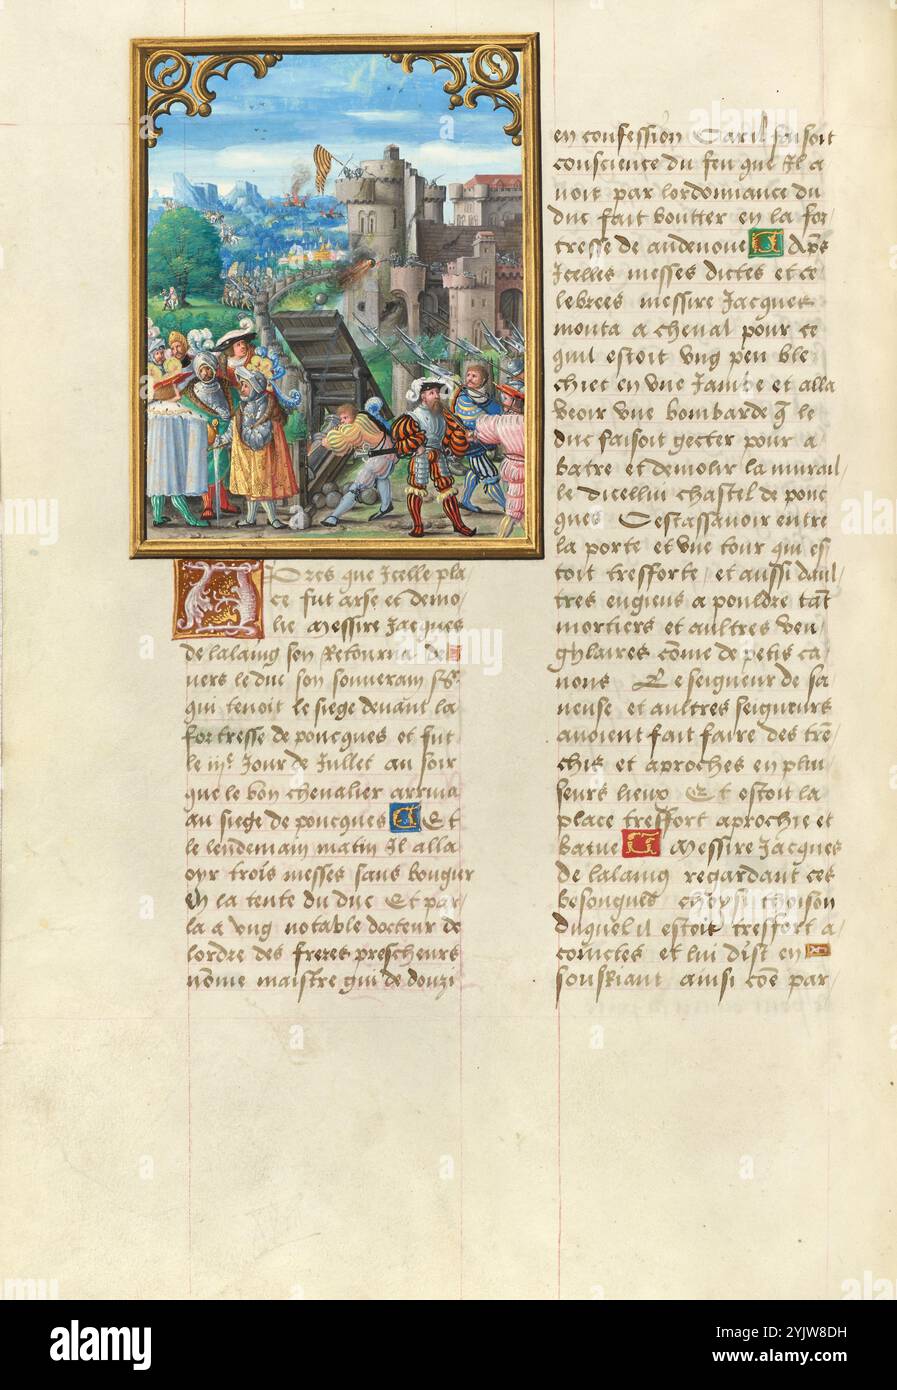 Apres que Icelle pla
ce fut arse et demo
lie Messire Jacques
de lalaing sen Retourna de
uers le duc son souuerain sgr
qui tenoit le siege deuant la
fortresse de poucques et fut
le iije Jour de Jullet au soir
que le bon cheualier arriua
au siege de poucques Et
le lendemain matin Il alla
oyr trois messes sans bougier
En la tente du duc Et par
la a vng notable docteur de
lordre des freres prescheurs
nōme maistre gui de douzi
en confession Car il faisoit
conscience du feu que Il a
uoit par lordonnance du
duc fait boutter en la for
tresse de audenoue Aps
Icelles messes dictes et ce
lebrees messire Jacques
monta a cheual pour ce
quil estoit vng peu ble
chiet en vne Jambe et alla
veoir vne bombarde q̄ le
duc faisoit gecter pour a
batre et demolir la murail
le dicellui chastel de pouc
ques Cestassauoir entre
la porte et vne tour qui es
toit tresforte et aussi daul
tres engiens a pouldre tāt
mortiers et aultres veu
glaires cōme de petis ca
nons Le seigneur de sa
ueuse et aultres seigneurs
auoient fait faire des trē
chis et aproches en plui
seurs lieux Et estoit la
place tresfort aprochie et
batue Messire Jacques
de lalaing regardant ces
besongnes choysi thoison
duquel il estoit tresfort a
cointes et lui dist en
soubriant ainsi cōe par
alamy
Image ID: 2YJW8DH
www.alamy.com